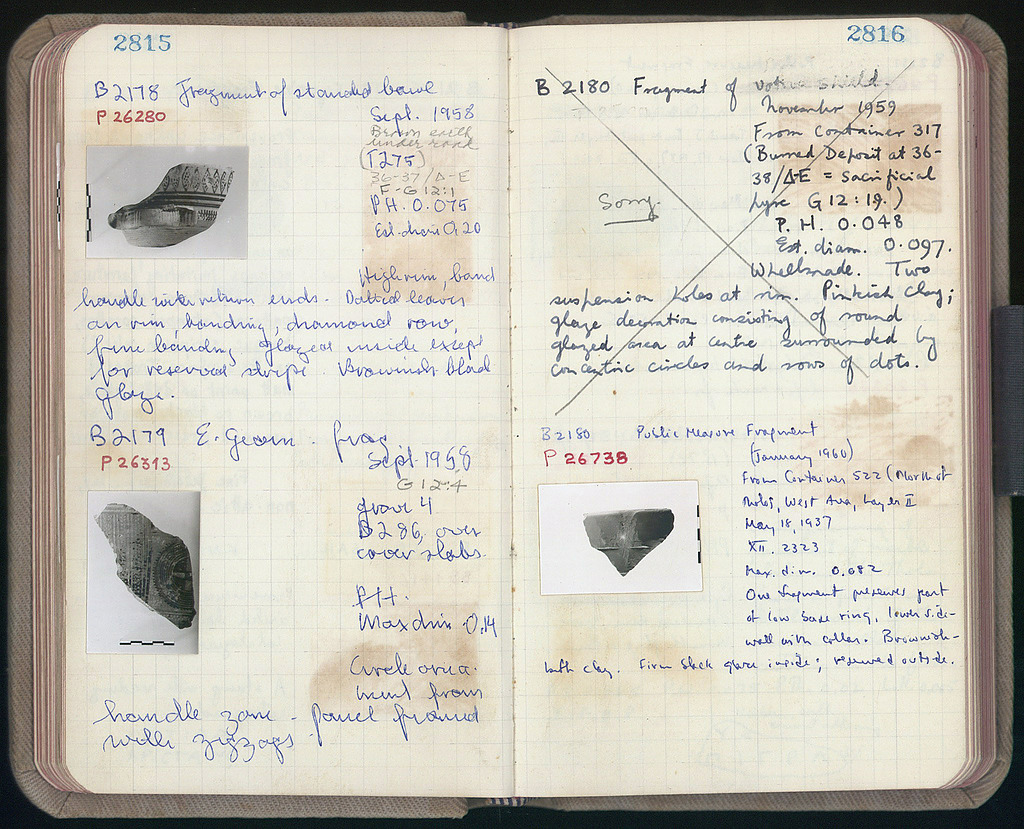 2815
B 2178 Fragment of standed bowl
P 26280
Sept. 1958
Brown earth
under road
(T275)
36-37/Δ-E
F-G 12:1
P.H. 0.075
Est. diam 0.20
High rim, band
handle with return ends. Dotted leaves
on rim, banding, diamond row,
fine banding. Glazed inside except
for reserved stripe. Brownish black
glaze.
B 2179 E. Geom. frag
P 26313
Sept. 1958
G 12:4
grave 4
B 286, over
cover slabs.
P.H.
Max dim 0.14
Circle orna-
ment from
handle zone - Panel framed
with zigzags
2816
B 2180 Fragment of votive shield
November 1959
From Container 317
(Burned Deposit at 36-
38/Δ-E = Sacrificial
Pyre G 12:19.)
Sorry.
P. H. 0.048
Est. diam. 0.097.
Wheelmade. Two
suspension holes at rim. Pinkish clay;
glaze decoration consisting of round
glazed area at centre surrounded by
concentric circles and rows of dots.
B 2180 Public Measure Fragment
P 26738
(January 1960)
From Container 522 (North of
Tholos, West Area, Layer II
May 18, 1937
XII. 2323
Max. dim. 0.082
One fragment preserves part
of low base ring, lower side-
wall with collar. Brownish-
buff clay. Firm black glaze inside; reserved outside.